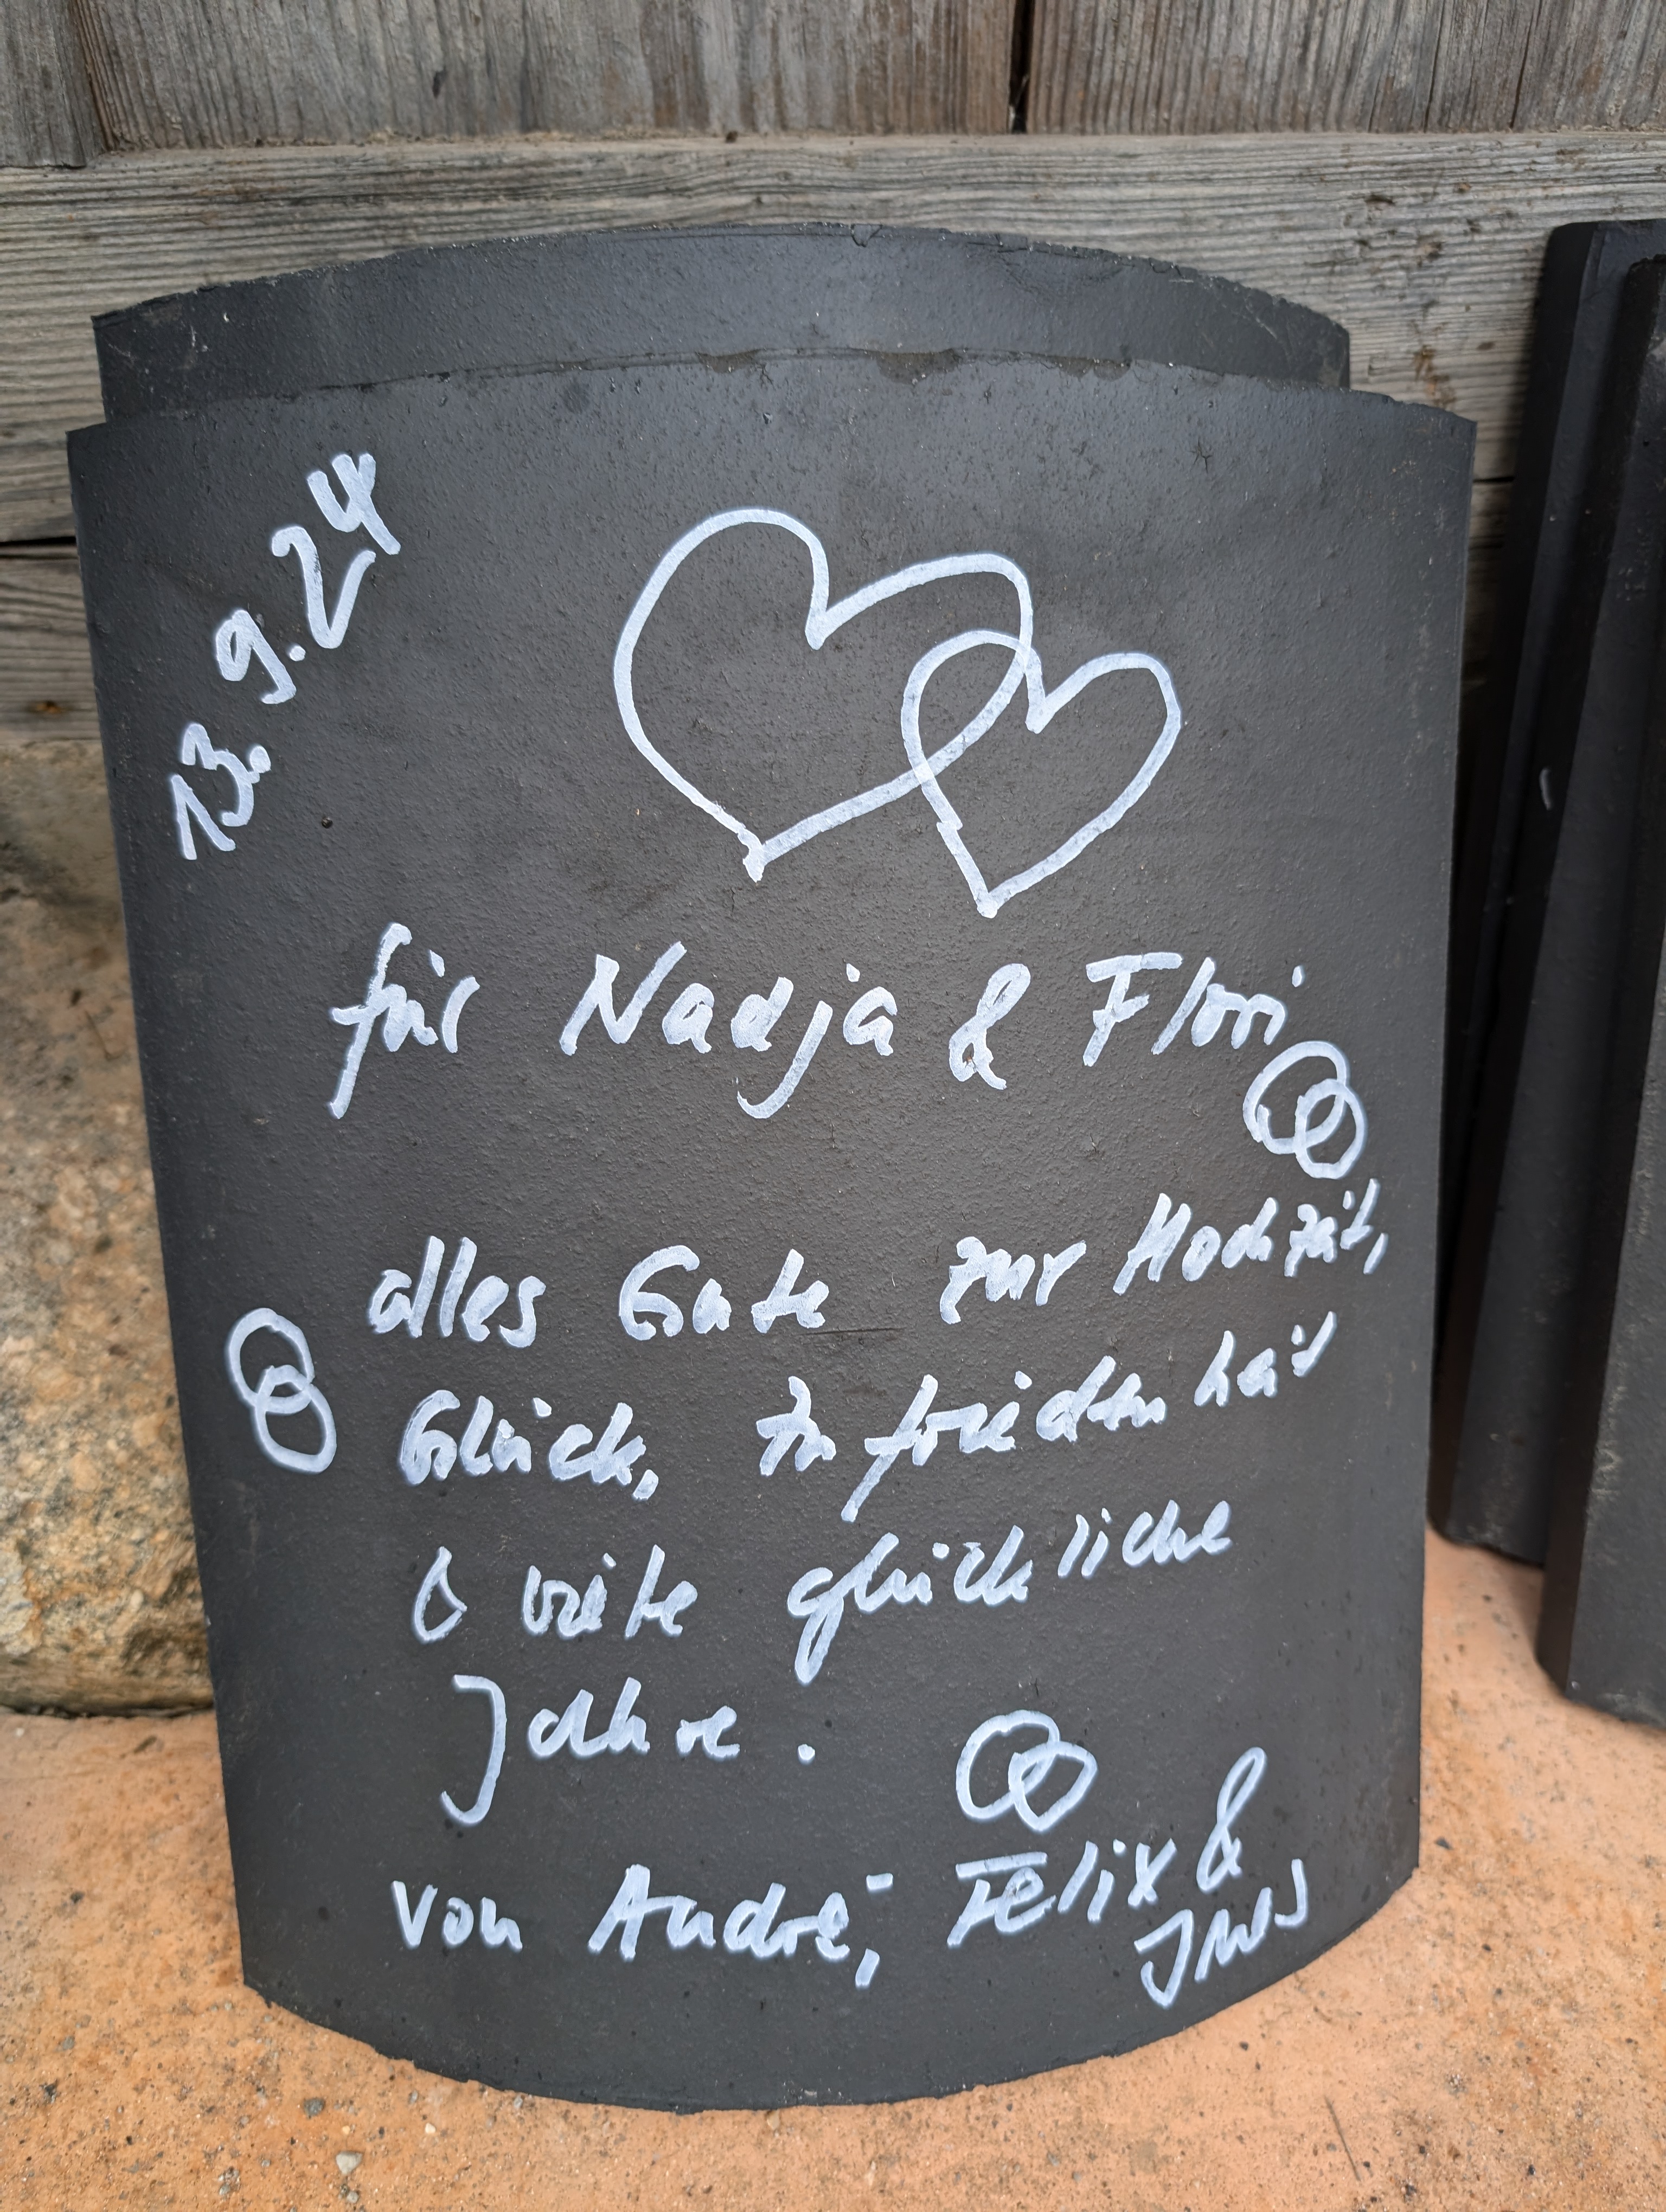 13.9.24
für Nadja & Flori
alles Gute zur Hochzeit,
Glück, Zufriedenheit
& viele glückliche
Jahre.
von André, Felix &
Ines